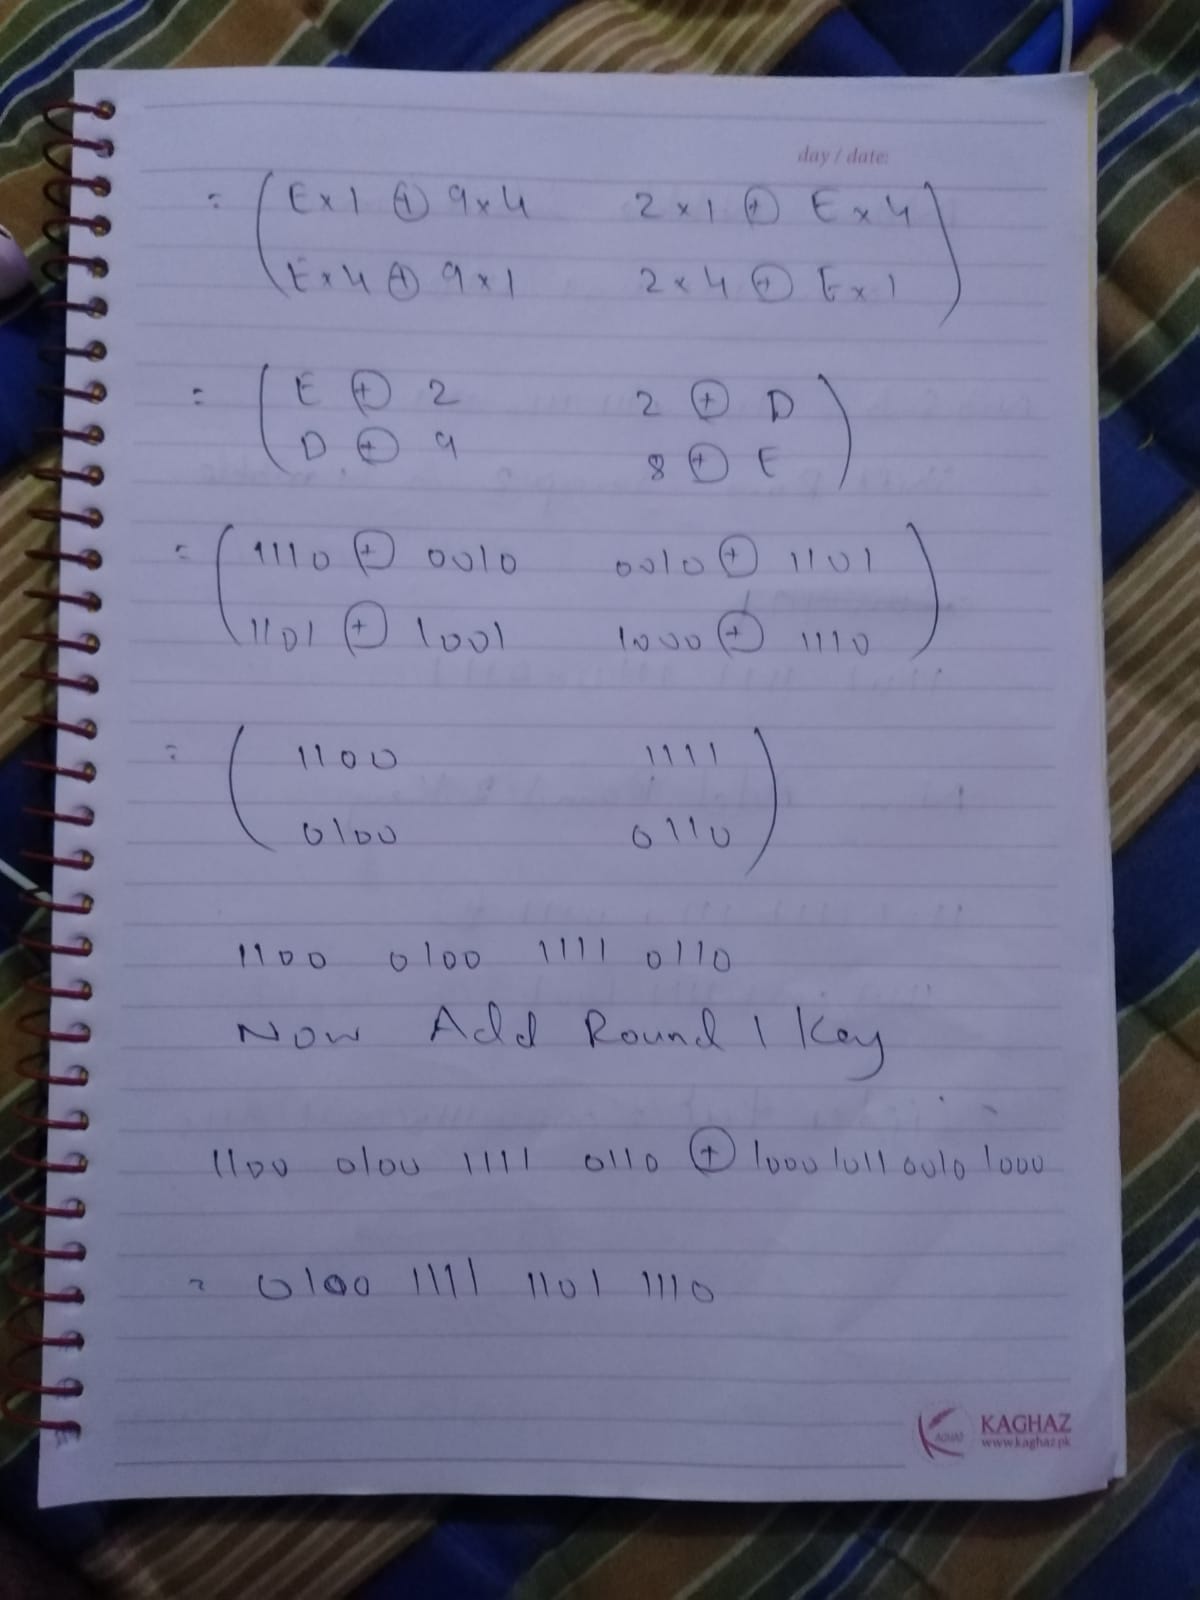 day / date:
= ( E × 1 ⊕ 9 × 4    2 × 1 ⊕ E × 4
E × 4 ⊕ 9 × 1    2 × 4 ⊕ E × 1 )
= ( E ⊕ 2    2 ⊕ D
D ⊕ 9    8 ⊕ E )
= ( 1110 ⊕ 0010    0010 ⊕ 1101
1101 ⊕ 1001    1000 ⊕ 1110 )
= ( 1100    1111
0100    0110 )
1100 0100 1111 0110
Now Add Round 1 Key
1100 0100 1111 0110 ⊕ 1000 1011 0010 1000
= 0100 1111 1101 1110
KAGHAZ
www.kaghaz.pk